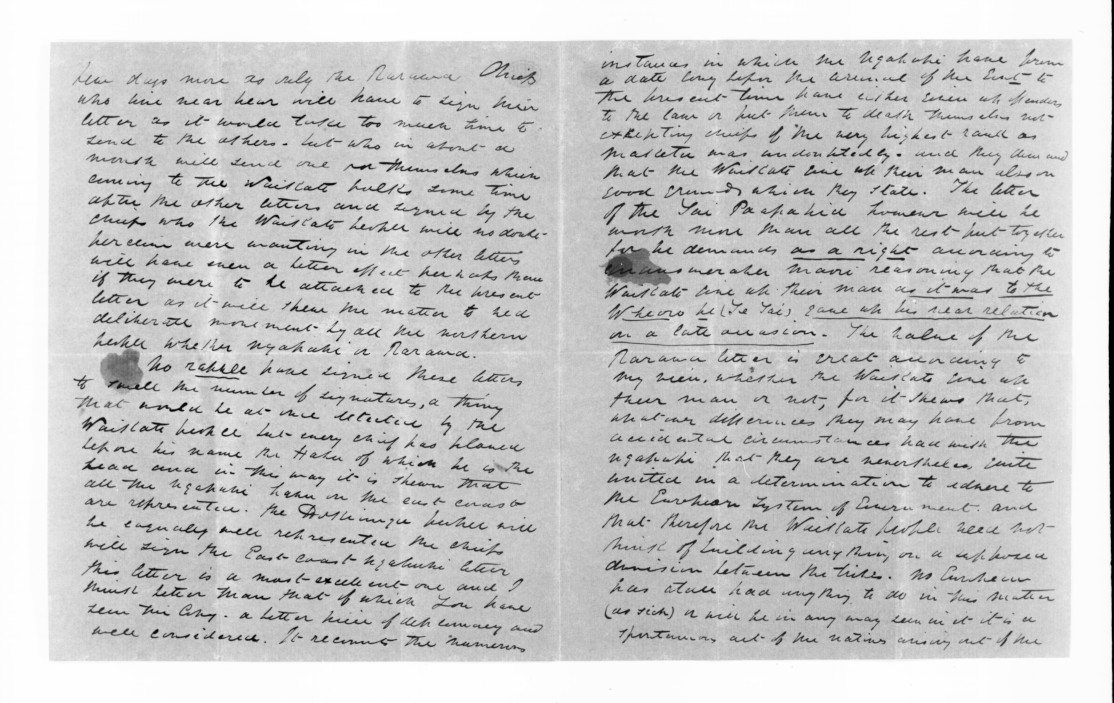 few days more as only the Rarawa Chiefs
who live near hear will have to sign their
letter as it would take too much time to
send to the others. but who in about a
month will send one themselves which
coming to the Waikato folks some time
after the other letters and signed by the
chiefs who the Waikato people will no doubt
perceive were wanting in the other letters
will have even a better effect perhaps than
if they were to be attached to the present
letter as it will shew the matter to be a
deliberate movement by all the northern
people whether Ngapuhi or Rarawa.
No rabble have signed these letters
to swell the number of signatures, a thing
that would be at once detected by the
Waikato people but every chief has placed
before his name the Hapu of which he is the
head and in this way it is shewn that
all the Ngapuhi hapu on the east coast
are represented. the Hokianga people will
be equally well represented the chiefs
will sign the East Coast Ngapuhi letter
this letter is a most excellent one and I
think better than that of which you have
seen the copy. a better piece of diplomacy and
well considered. It recounts the numerous
instances in which the Ngapuhi have from
a date long before the arrival of the Govt to
the present time have either given up offenders
to the law or put them to death themselves not
excepting chiefs of the very highest rank as
Maketu was undoubtedly. and they demand
that the Waikato give up their man also on
good grounds which they state. The letter
of the Tai Papahia however will be
worth more than all the rest put together
for he demands as a right according to
unanswerable maori reasoning that the
Waikato give up their man as it was to the
Wheoro he (Te Tai) gave up his near relation
on a late occasion. The value of the
Rarawa letter is great according to
my view, whether the Waikato give up
their man or not, for it shews that,
whatever differences they may have from
accidental circumstances had with the
Ngapuhi that they are nevertheless quite
united in a determination to adhere to
the European System of Government. and
that therefore the Waikato people need not
think of building anything on a supposed
division between the tribes. No European
has atall had anything to do in this matter
(as such) or will be in any way seen in it it is a
spontaneous act of the natives arising out of the